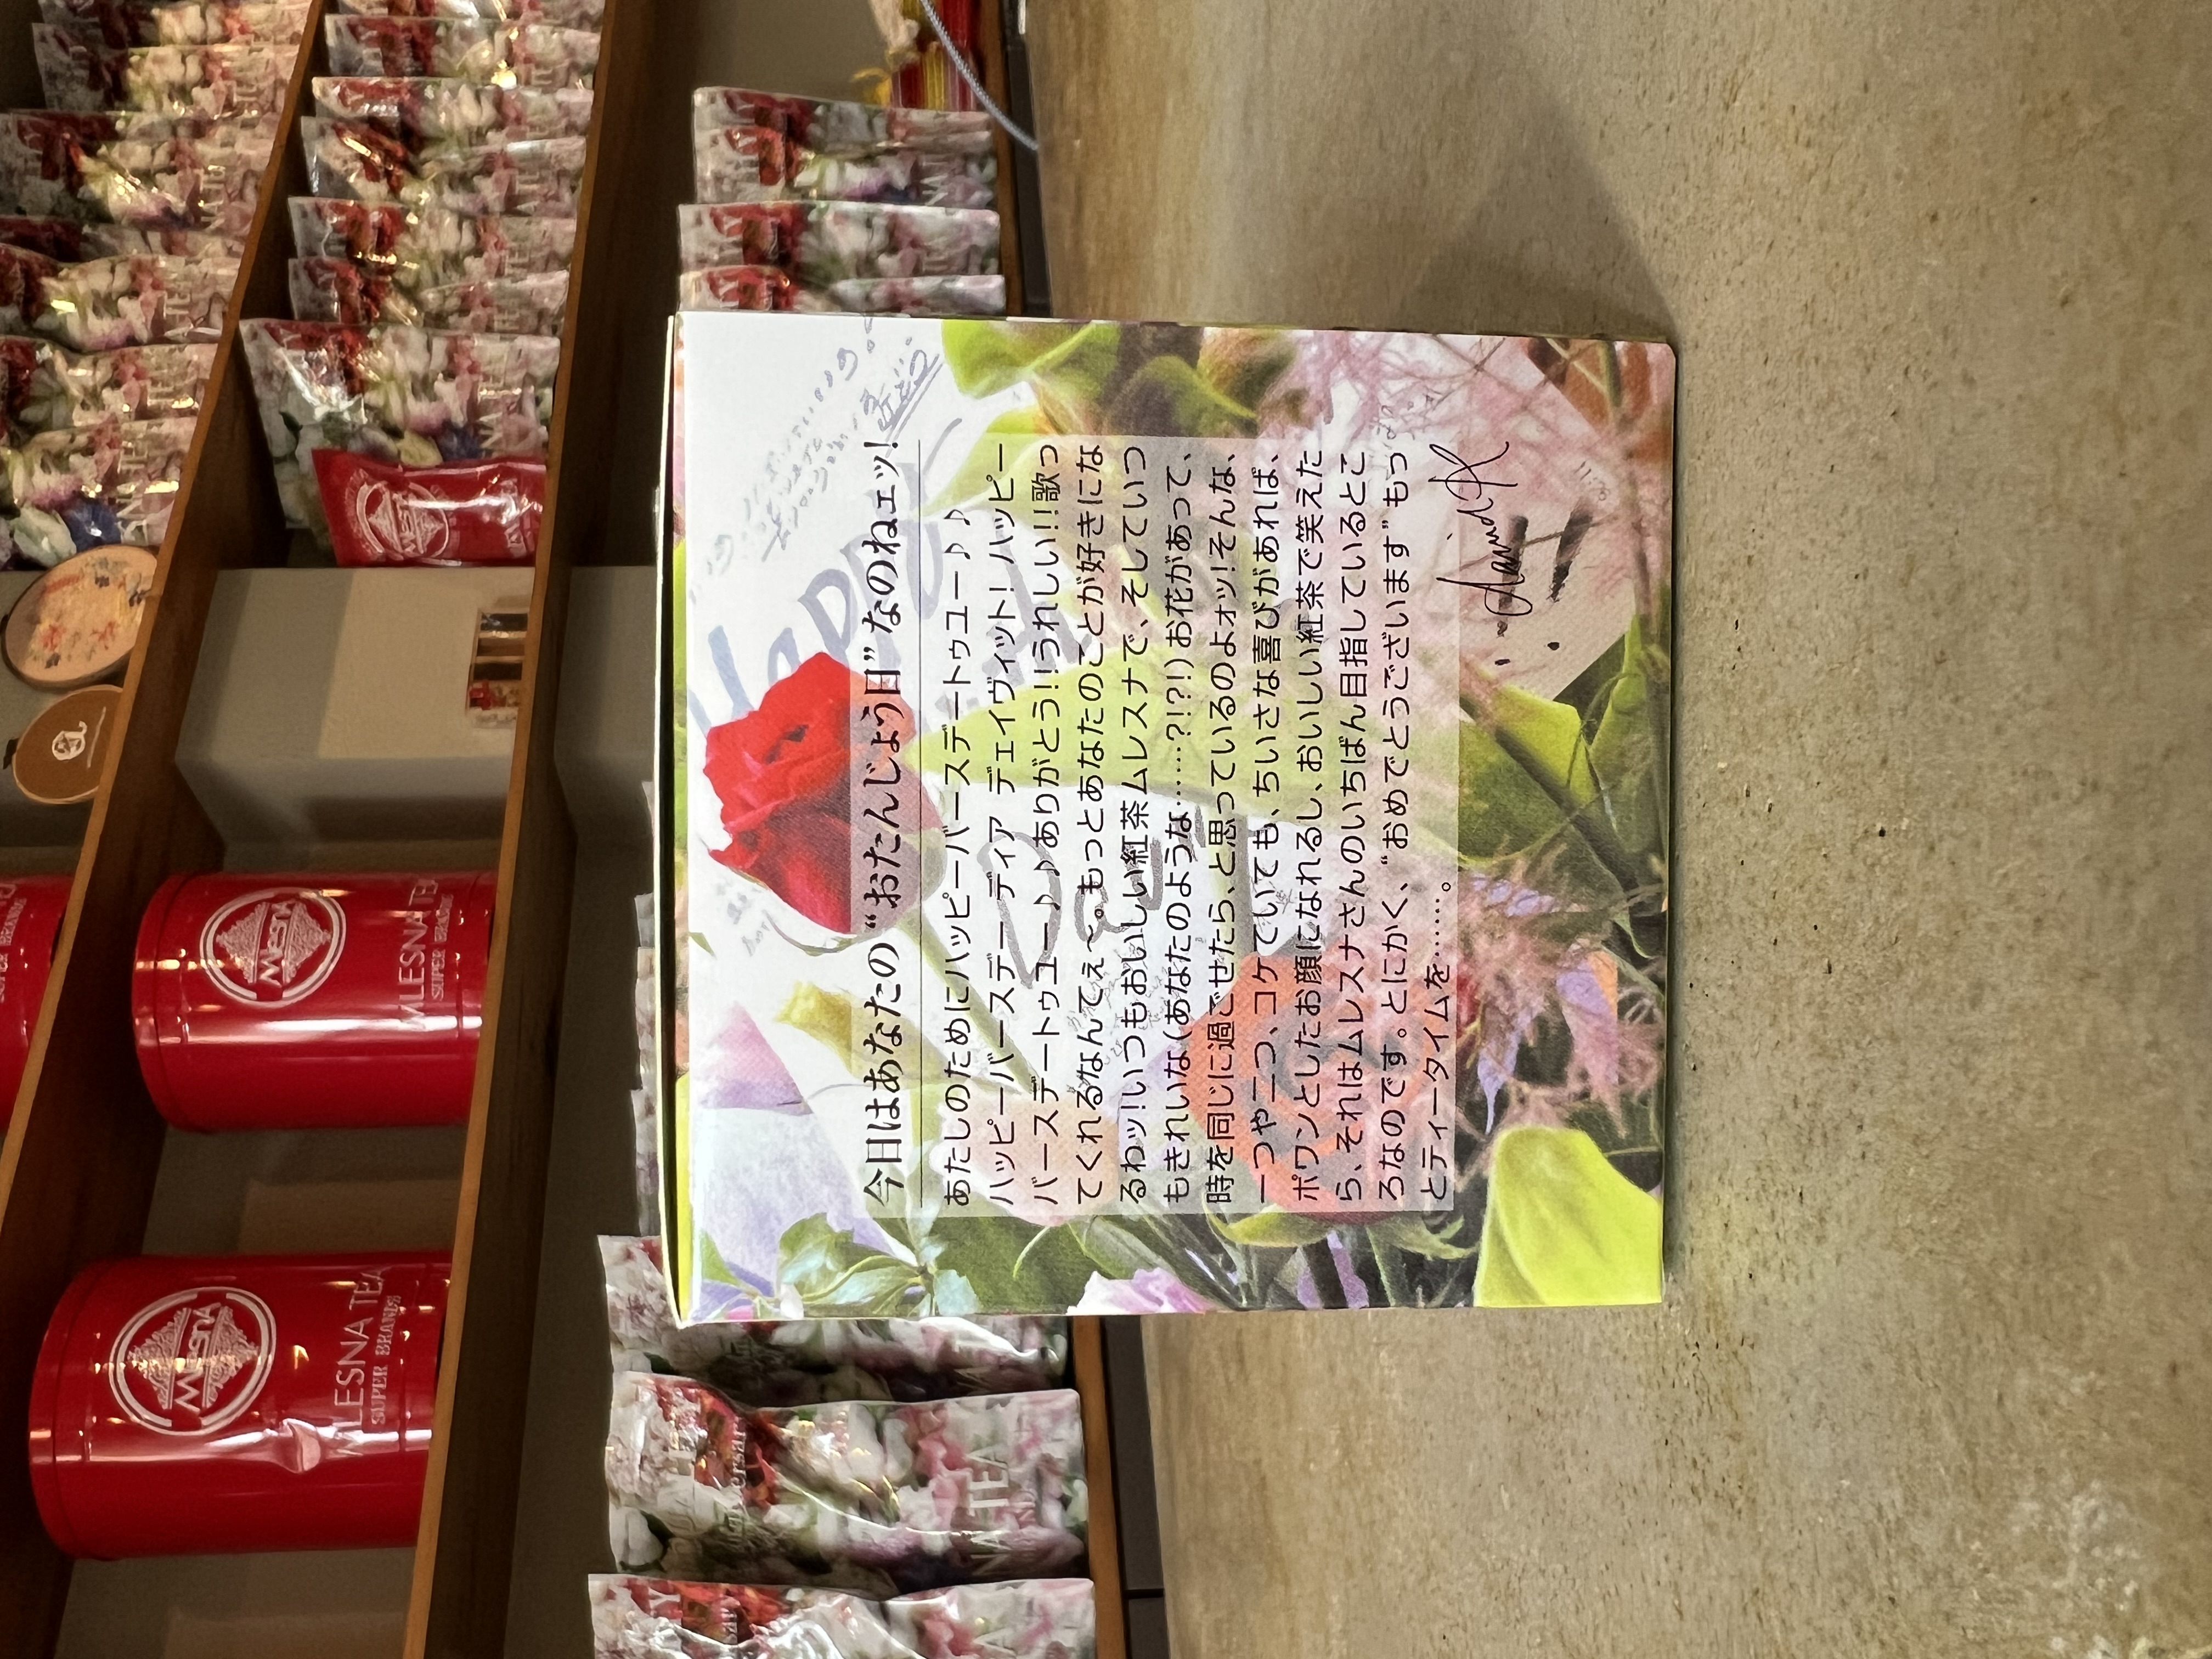 今日はあなたの“おたんじょう日”なのねェッ!
あたしのためにハッピーバースデートゥユー♪♪
ハッピーバースデー ディア デェイヴィット! ハッピー
バースデートゥユー♪♪ありがとう!!うれしい!!歌っ
てくれるなんてぇ〜。もっとあなたのことが好きにな
るわッ!いつもおいしい紅茶ムレスナで、そしていつ
もきれいな(あなたのような……?!?!)お花があって、
時を同じに過ごせたら、と思っているのよォッ!そんな、
一つや二つ、コケていても、ちいさな喜びがあれば、
ポワンとしたお顔になれるし、おいしい紅茶で笑えた
ら、それはムレスナさんのいちばん目指しているとこ
ろなのです。とにかく、“おめでとうございます”もっ
とティータイムを……。
Happy
MlesnA
MLESNA TEA
SUPER BRANDS
MlesnA
MLESNA TEA
SUPER BRANDS
MlesnA
TEA